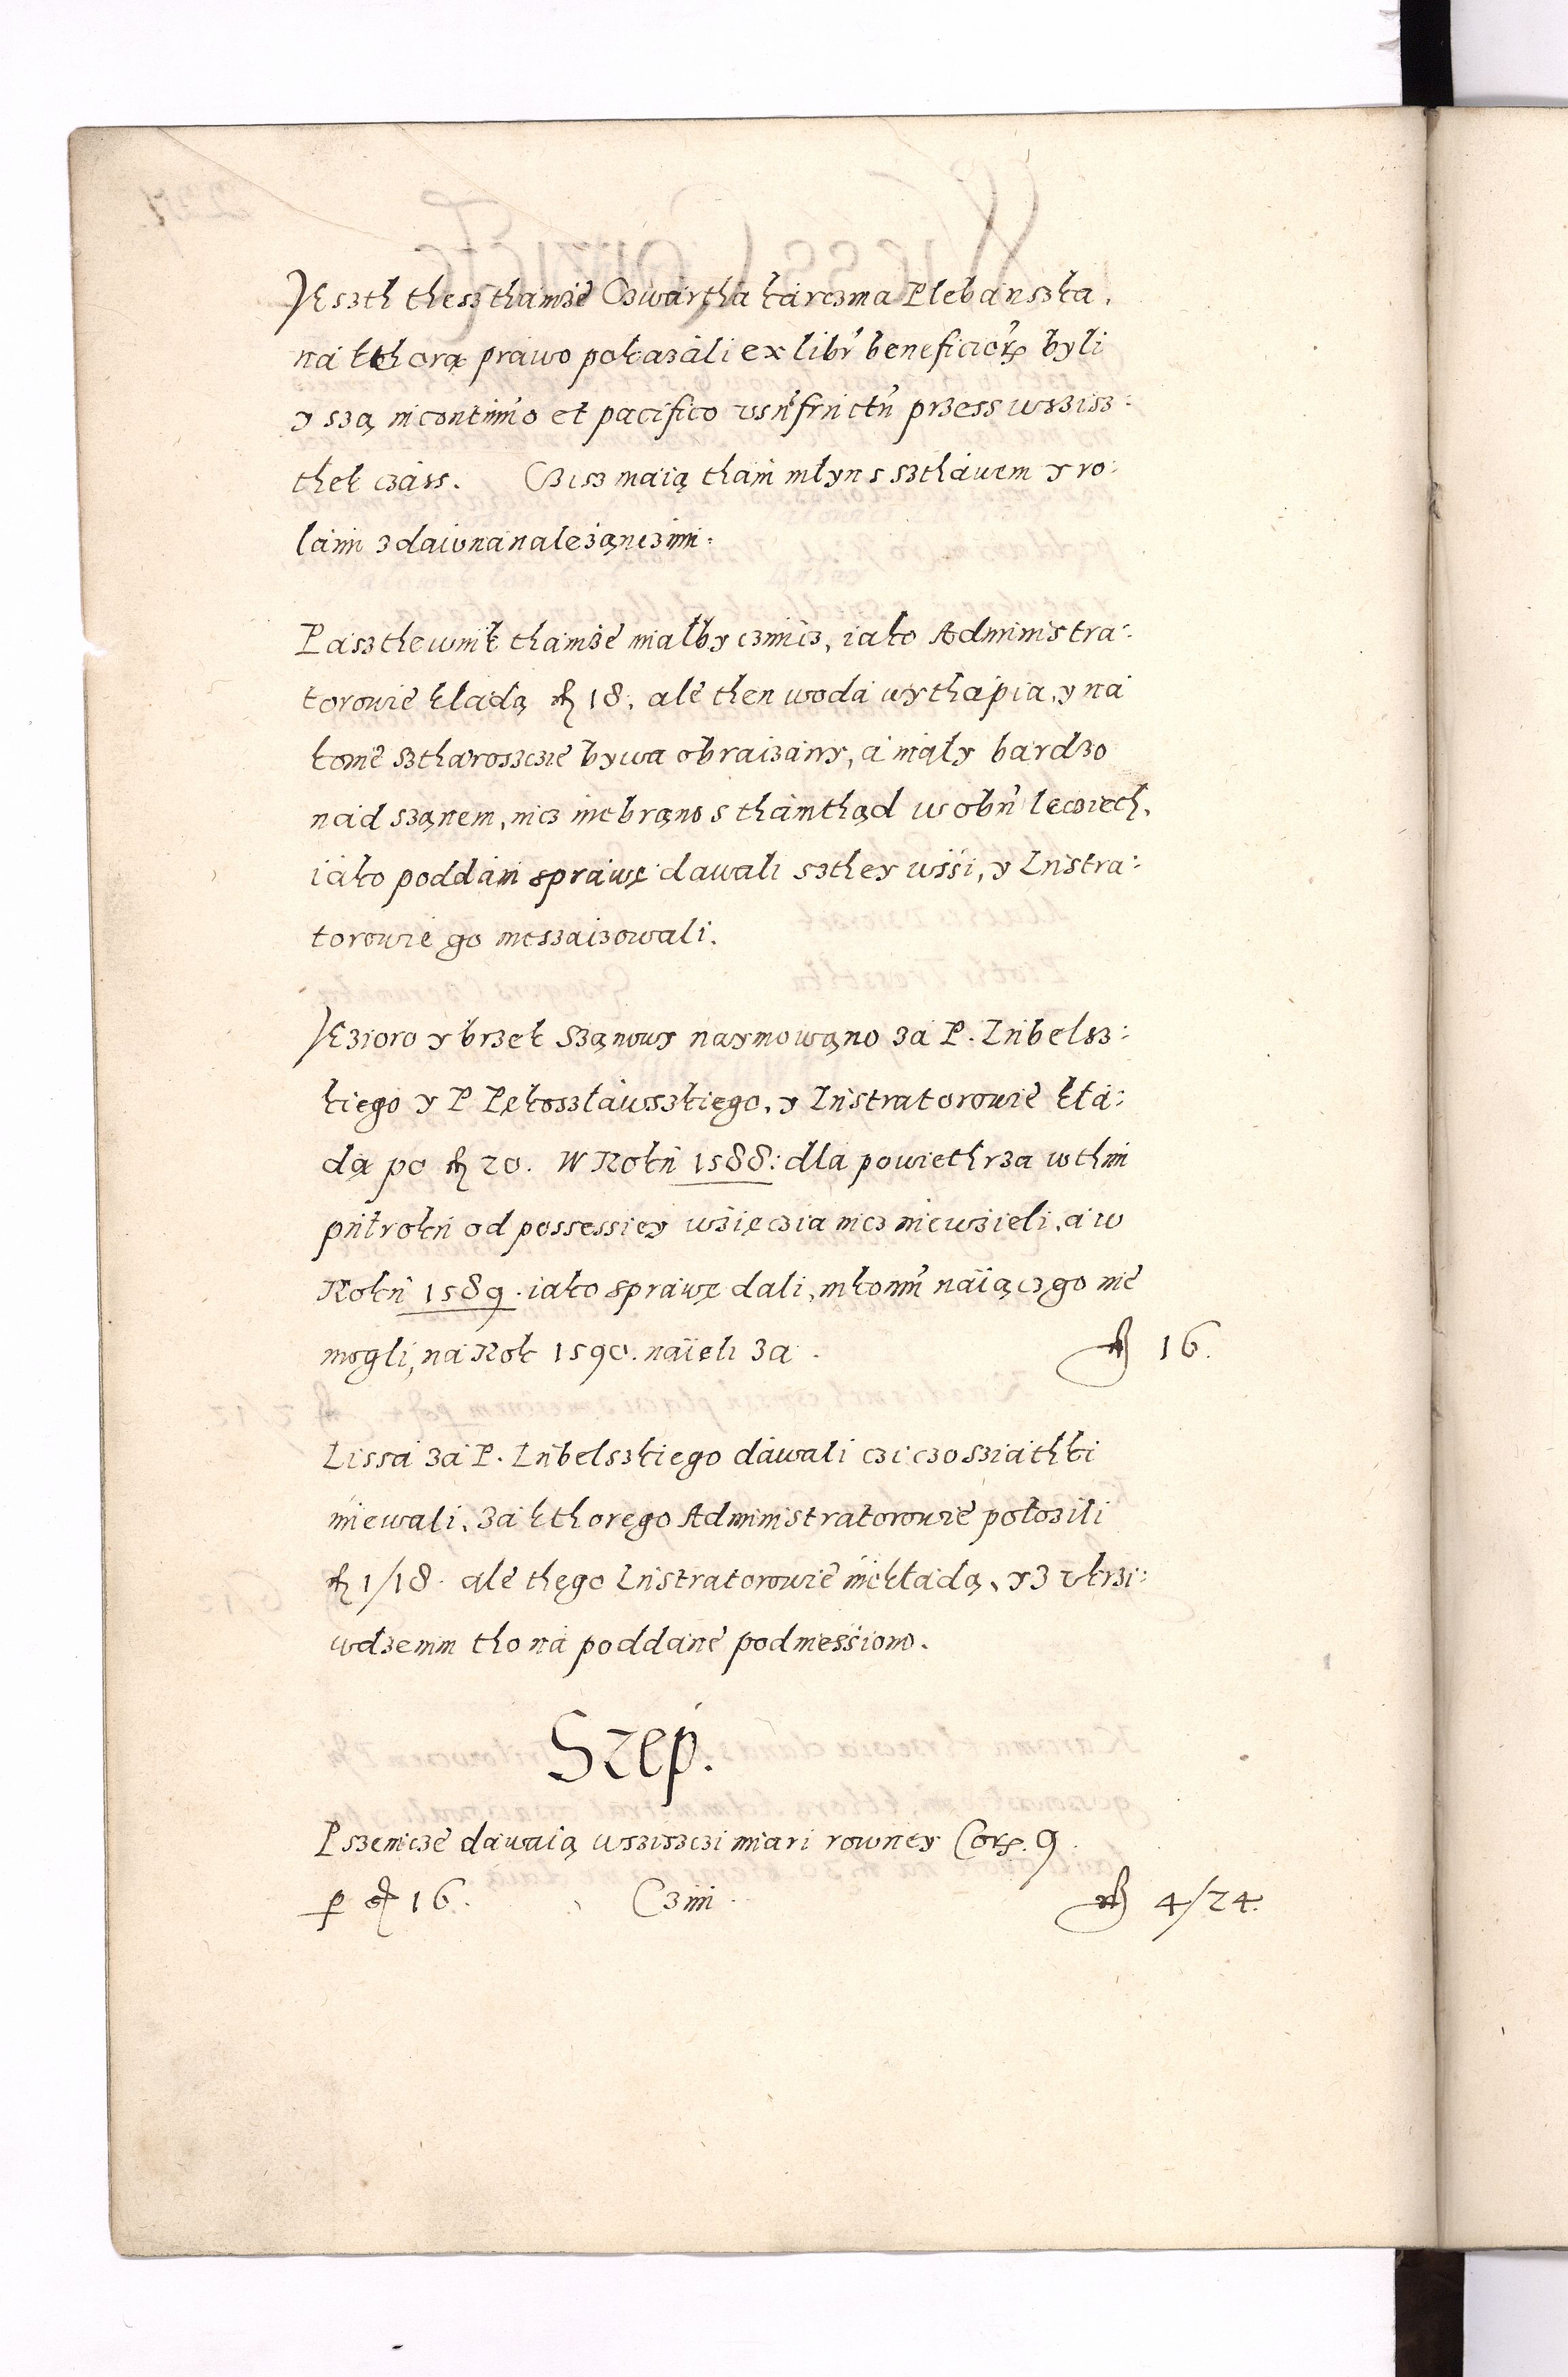 Jeszth thesz thamże Czwartha karczma Plebanszka,
na kthorą prawo pokazali ex libr beneficior byli
y szą in continuo et pacifico vsufructu przess wszisz:
thek czáss. Czisz maią tham młyn s szthawem y ro:
lami zdawna należączimi.
Paszthewnik thamże miałby czinicz, iako Administra:
torowie kladą fl 18. ale then woda wythapia, y na
kome sztharoszczie bywa obraizany, a mały bardzo
nad szanem, nicz niebrano s thamthąd w obu leciech,
iako poddani sprawę dawali szthey wssi, y Lustra:
torowie go nieszaizowali.
Jezioro y brzek Szanowy naymowano za P. Lubelsz:
kiego y P Pękoszławsszkiego, y Lustratorowie kła:
dą po fl 20. W Roku 1588: dla powiethrza wthim
pułroku od possessiey wzięczia nicz niewzieli, a w
Roku 1589. iako sprawę dali, nikomu naiącz go nie
mogli, na Rok 1590. naieli za. fl 16.
Lissa za P. Lubelszkiego dawali czi czo sziathki
miewali, za kthorego Administratorowie położili
fl 1/18. ale thego Lustratorowie niekładą, yz vkrzi:
wdzenim tho na poddane podniessiono.
Szep.
Pszenicze dawaią wsziszczi miari rowney Cor. 9
p gr 16. Czini. fl 4/24.